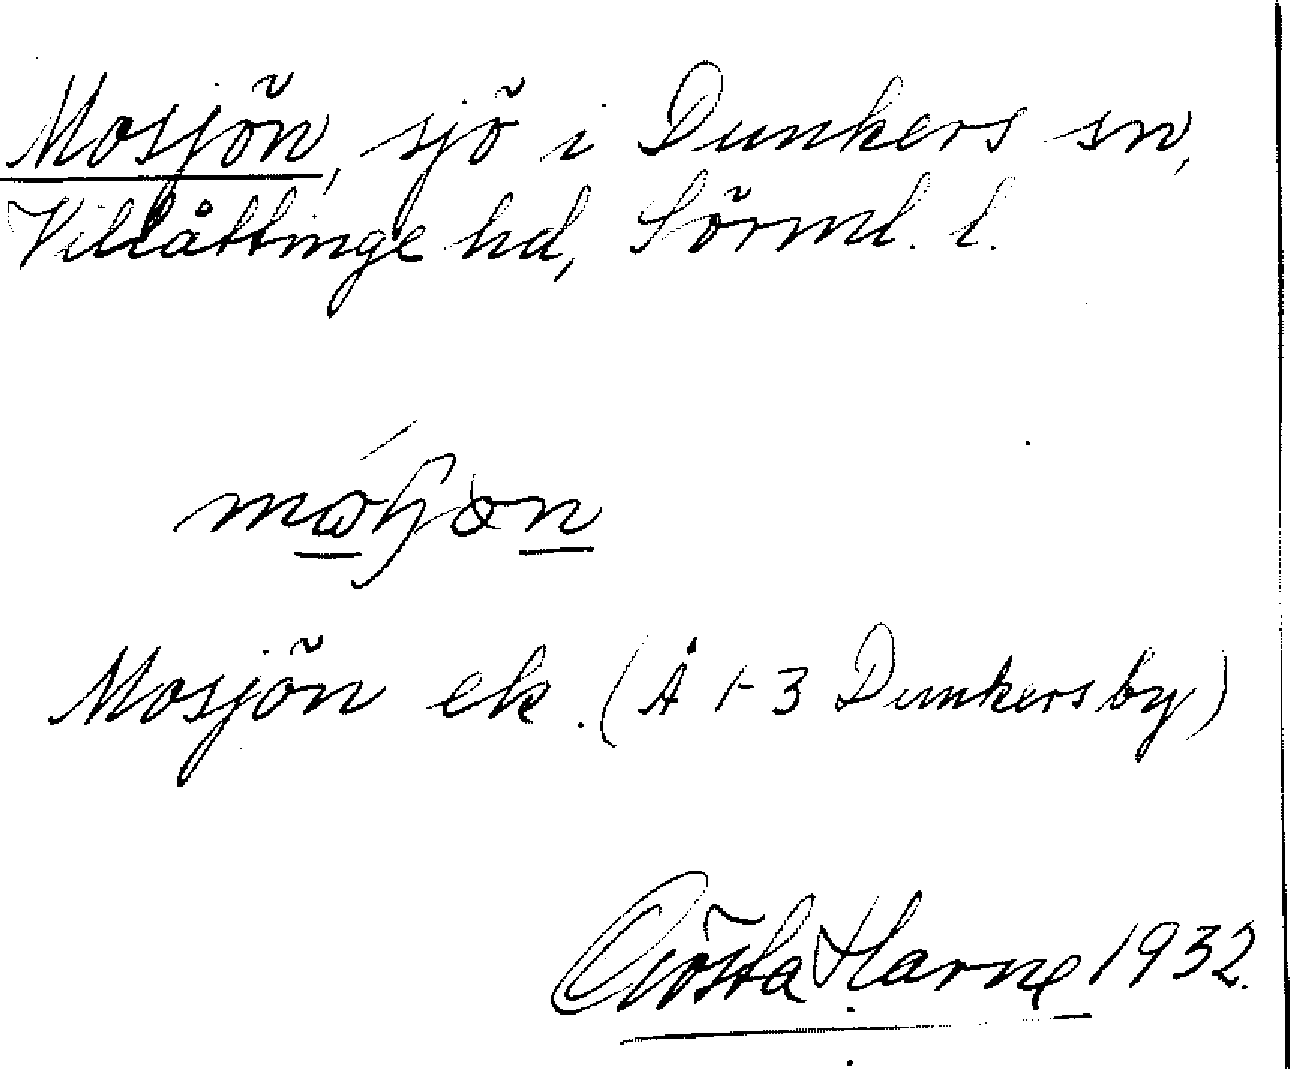 Mosjön, sjö i Dunkers sn,
Villåttinge hd, Sörml. l.
Mosjön ek. (Å 1-3 Dunkersby)
Gösta Harne 1932.